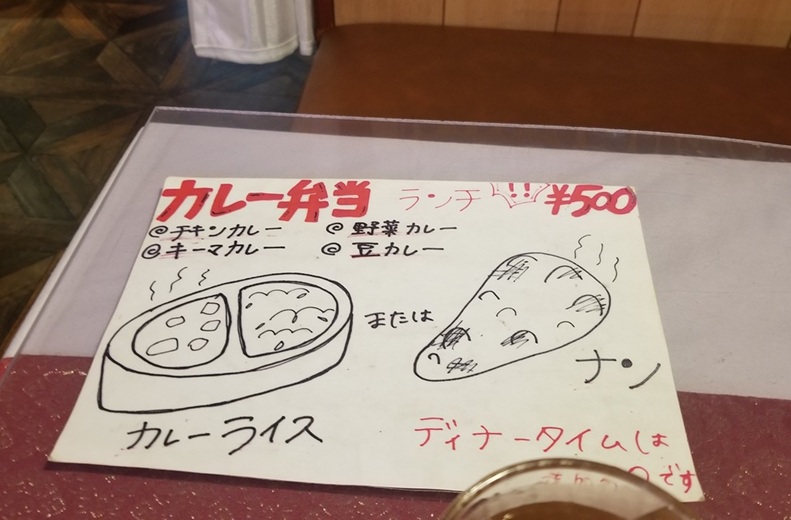 カレー弁当 ランチ !! ¥500
@チキンカレー @野菜カレー
@キーマカレー @豆カレー
または
ナン
カレーライス
ディナータイムは
です